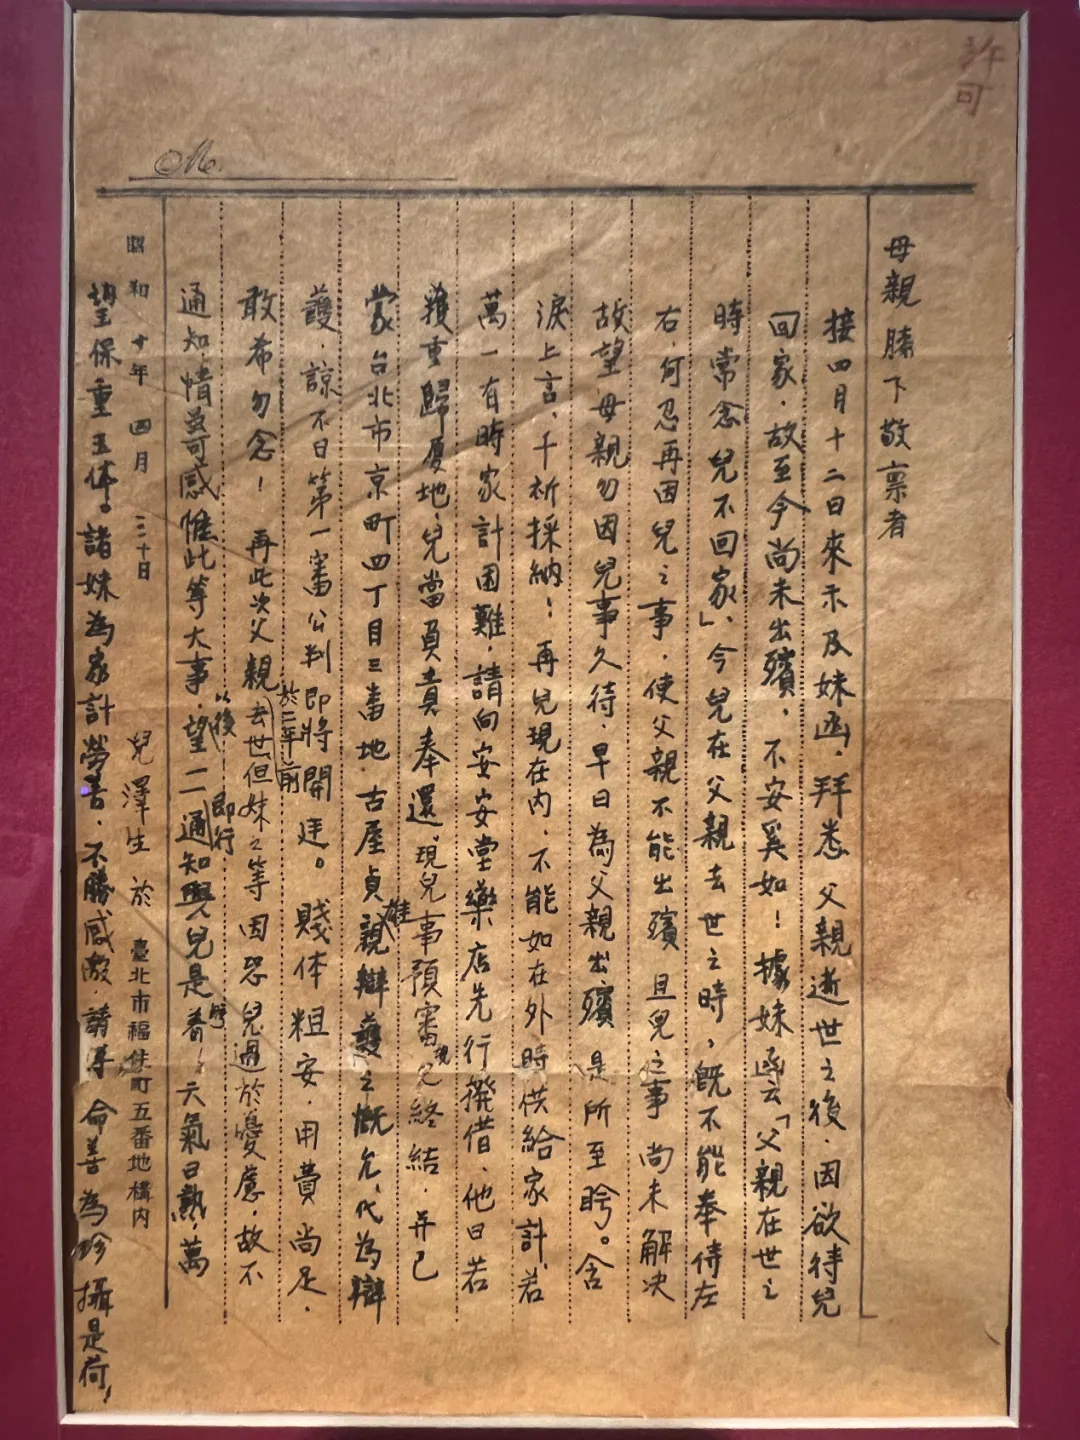 許可
No.
母親膝下敬禀者
接四月十二日來示及妹函、拜悉 父親逝世之後、因欲待兒
回家、故至今尚未出殯、不安奚如！據妹函云「父親在世之
時常念兒不回家」、今兒在父親去世之時，既不能奉侍左
右、何忍再因兒之事、使父親不能出殯 且兒之事 尚未解决
故望母親勿因兒事久待、早日為父親出殯 是所至盼。含
淚上言、千祈採納！ 再兒現在内、不能如在外時供給家計、若
萬一有時家計困難、請向安安堂藥店先行撥借、他日若
獲重歸厦地、兒當負責奉還、現兒事預審現已終結、并已
蒙台北市京町四丁目三番地、古屋貞雄親辯護之慨允、代為辯
護、諒不日第一審公判即將開廷。 賤体粗安、用費尚足、
敢希勿念！ 再此次父親於二年前去世但妹之等因恐兒過於憂慮、故不
通知、情尊可感 惟此等大事、以後望一一即行通知與兒是荷！ 天氣日熱、萬
昭和十年 四月 三十日 兒澤生 於 臺北市福住町五番地構内
望保重玉体。諸妹為家計勞苦、不勝感激 請 命善為珍攝是荷！